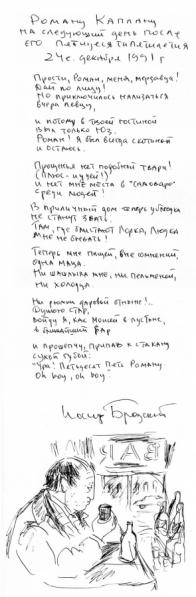 Роману Каплану
на следующий день после
его пятидесятипятилетия
24е декабря 1991 г
Прости, Роман, меня, мерзавца!
Дай по лицу!
Но приключилось нализаться
вчера певцу,
и потому в твоей гостиной
был только Юз.
Роман! Я был всегда скотиной
и остаюсь.
Прощенья нет подобной твари!
(Плюс - иудей!)
и нет мне места в "Самоваре"
среди людей!
В приличный дом теперь ублюдка
не станут звать.
Там, где блистают Лорка, Людка
мне не бывать!
Теперь мне пищей, вне сомнений,
одна маца.
Ни шашлыка мне, ни пельменей,
ни холодца.
Ни рюмки даровой отныне!..
Душою стар,
войду я, как Моисей в пустыне,
в ближайший бар
и прошепчу, припав к стакану
сухой губой:
"Ура! Пятьдесят пять Роману
Oh boy, oh boy"
Иосиф Бродский
БАР